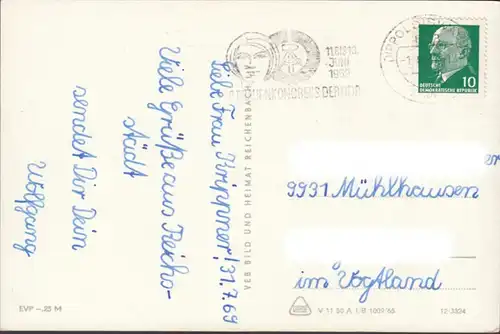 Liebe Frau Krippner! 31.7.69
Viele Grüße aus Reichs-
stadt
sendet Dir Dein
Wolfgang
EVP -.25 M
VEB BILD UND HEIMAT REICHENBACH
11.BIS 13.
JUNI
FRAUENKONGRESS DER DDR
10
DEUTSCHE
DEMOKRATISCHE REPUBLIK
er
9931 Mühlhausen
im Vogtland
V 11 50 A 1/B 1009/65
12-3324